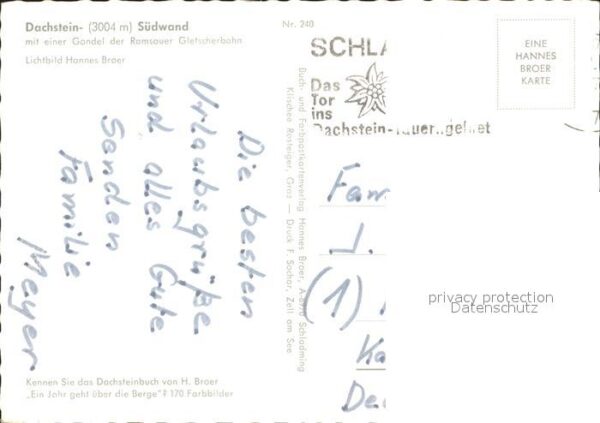 Dachstein- (3004 m) Südwand
mit einer Gondel der Ramsauer Gletscherbahn
Lichtbild Hannes Broer
Nr. 240
SCHLA
Das
Tor
ins
Dachstein-
EINE
HANNES
BROER
KARTE
Die besten
Urlaubsgrüße
und alles Gute
senden
Familie
Meyer
Buch- und Farbpostkartenverlag Hannes Broer, A-8970 Schladming
Klischee Rosteiger, Graz — Druck F. Sochor, Zell am See
Fam
J.
(1)
Ka
De
privacy protection
Datenschutz
Kennen Sie das Dachsteinbuch von H. Broer
„Ein Jahr geht über die Berge"? 170 Farbbilder